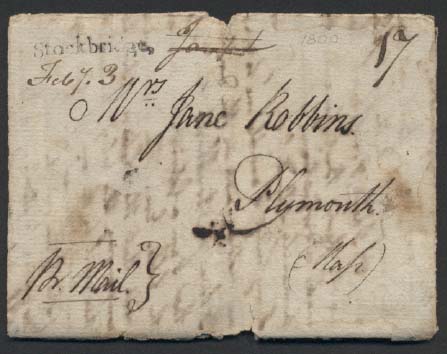 Stockbridge, 1800 17
Feby. 3
Mrs Jane Robbins.
Plymouth.
(Mass)
Pr. Mail.